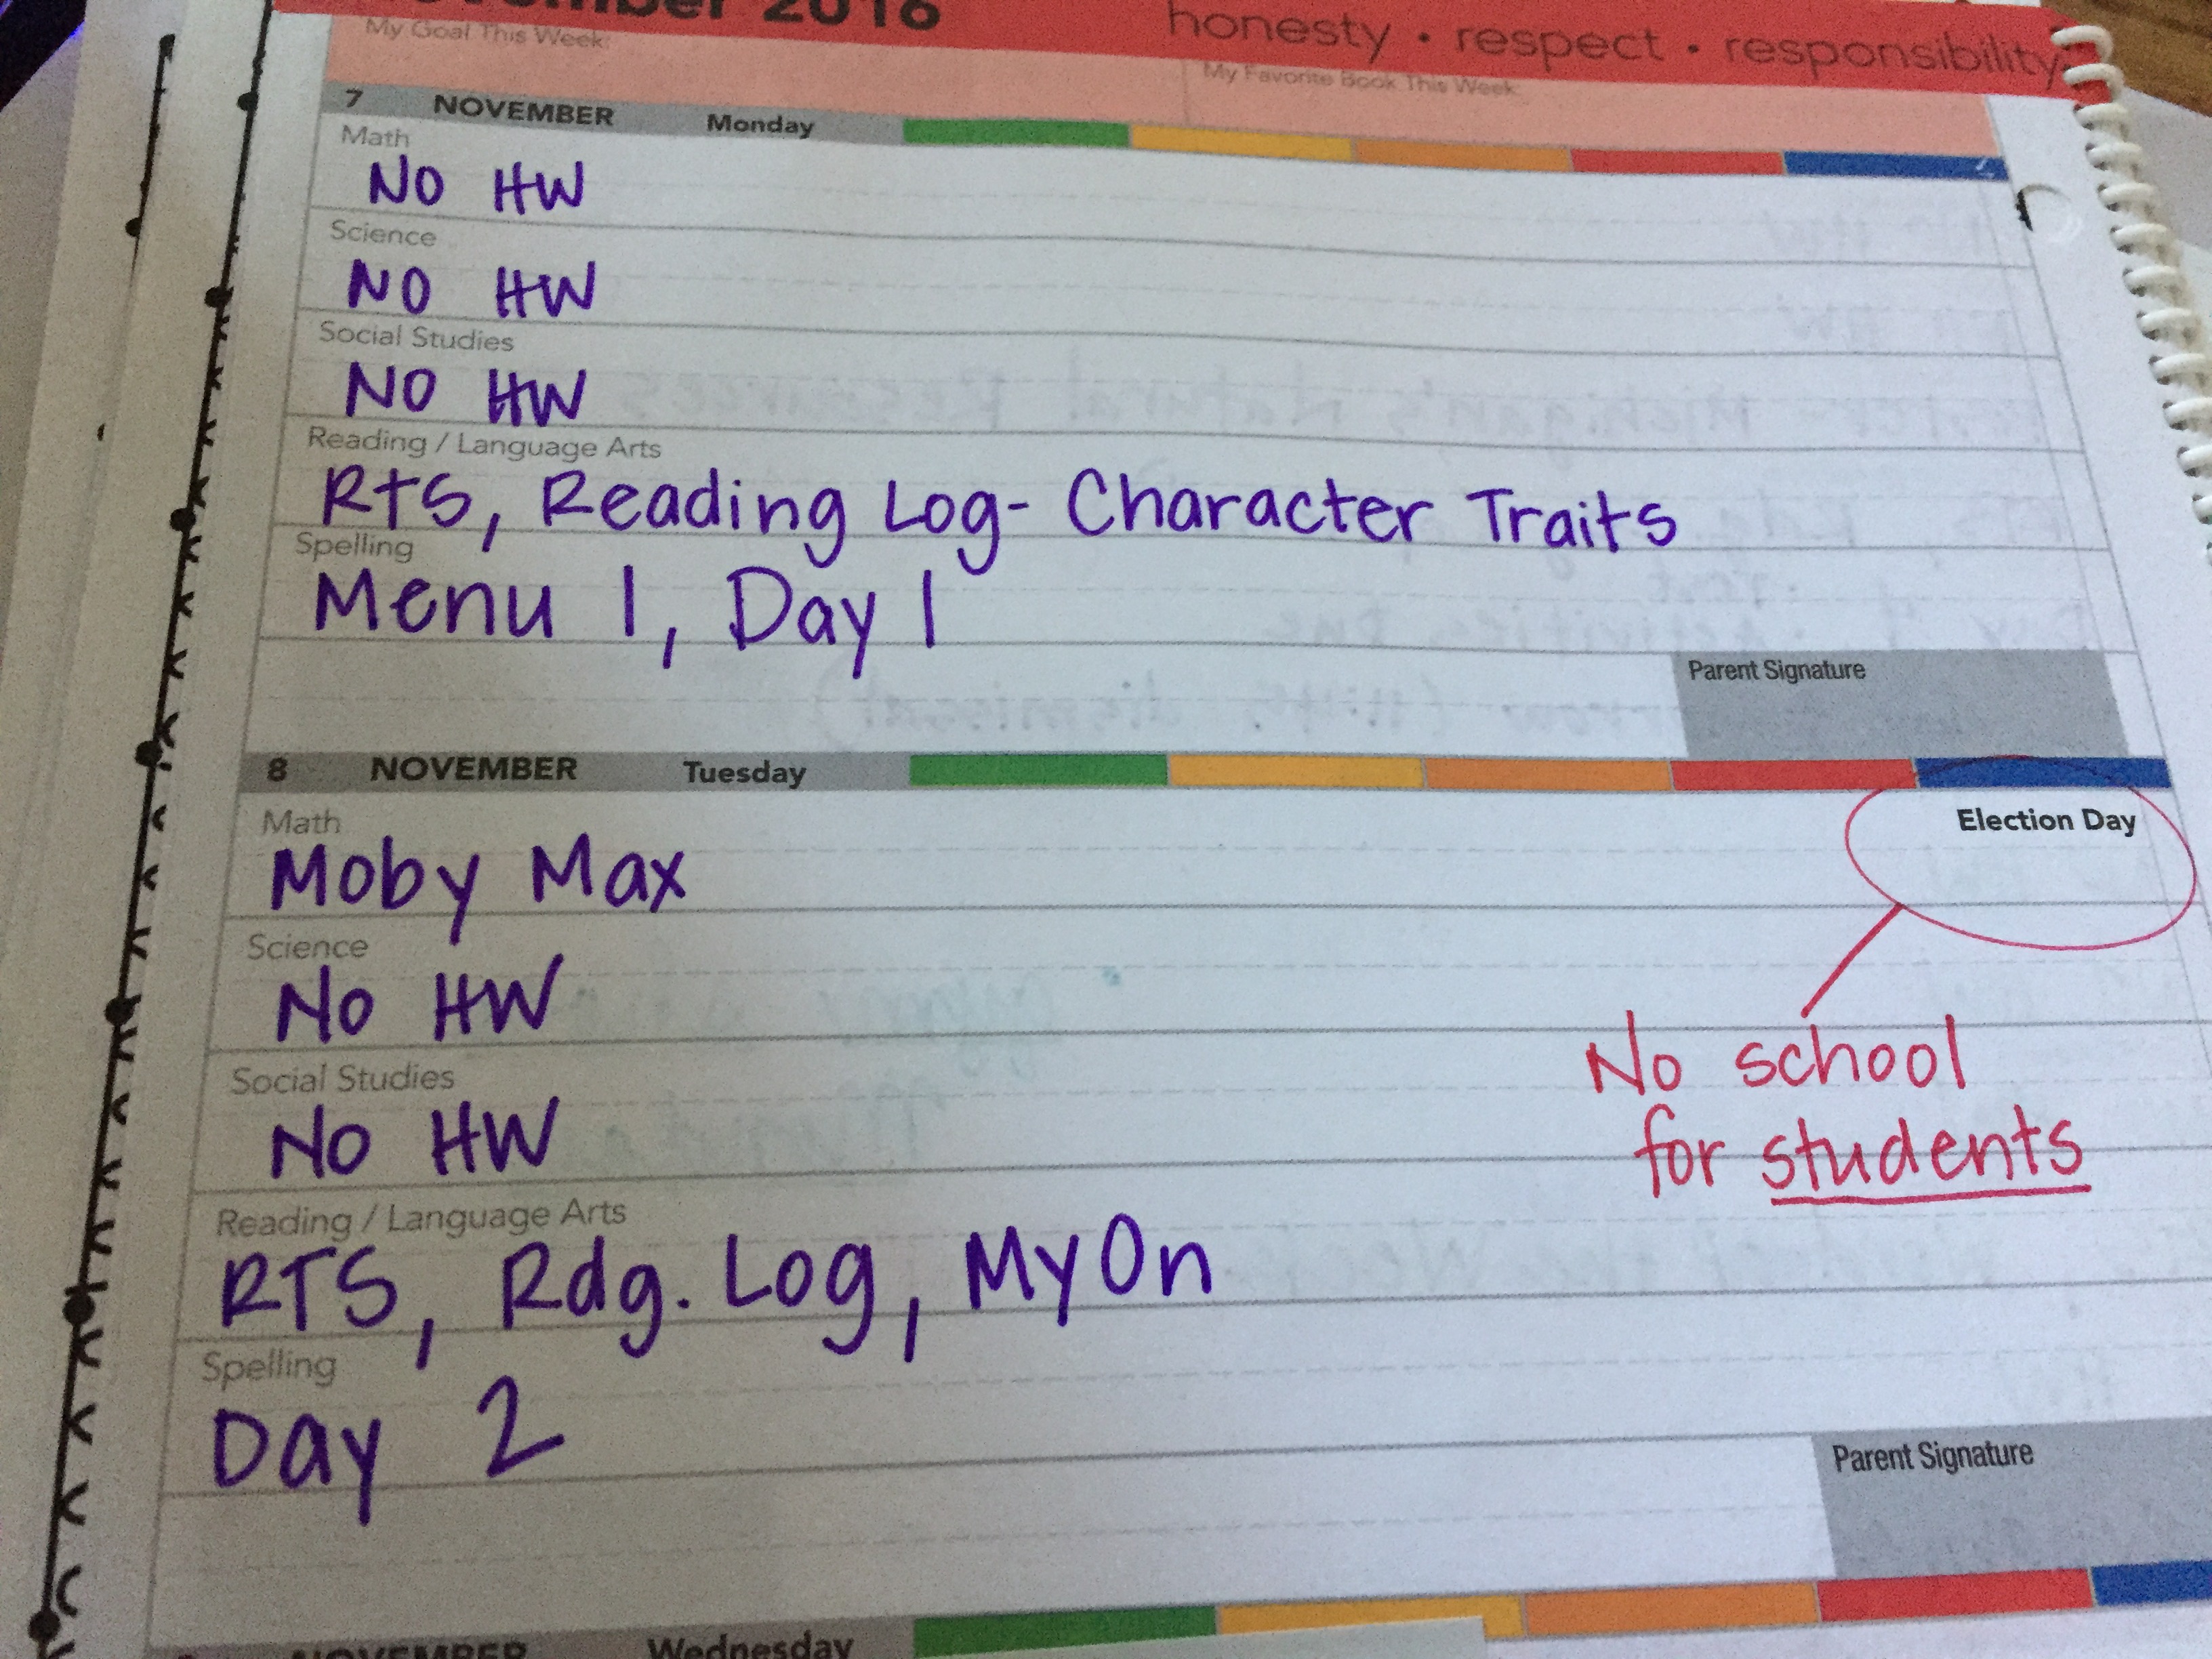 2016
honesty • respect • responsibility
My Goal This Week:
My Favorite Book This Week:
7 NOVEMBER Monday
Math
No HW
Science
No HW
Social Studies
No HW
Reading / Language Arts
RtS, Reading Log- Character Traits
Spelling
Menu 1, Day 1
Parent Signature
8 NOVEMBER Tuesday
Election Day
Math
Moby Max
Science
No HW
No school
for students
Social Studies
No HW
Reading / Language Arts
RTS, Rdg. Log, MyOn
Spelling
Day 2
Parent Signature
NOVEMBER Wednesday